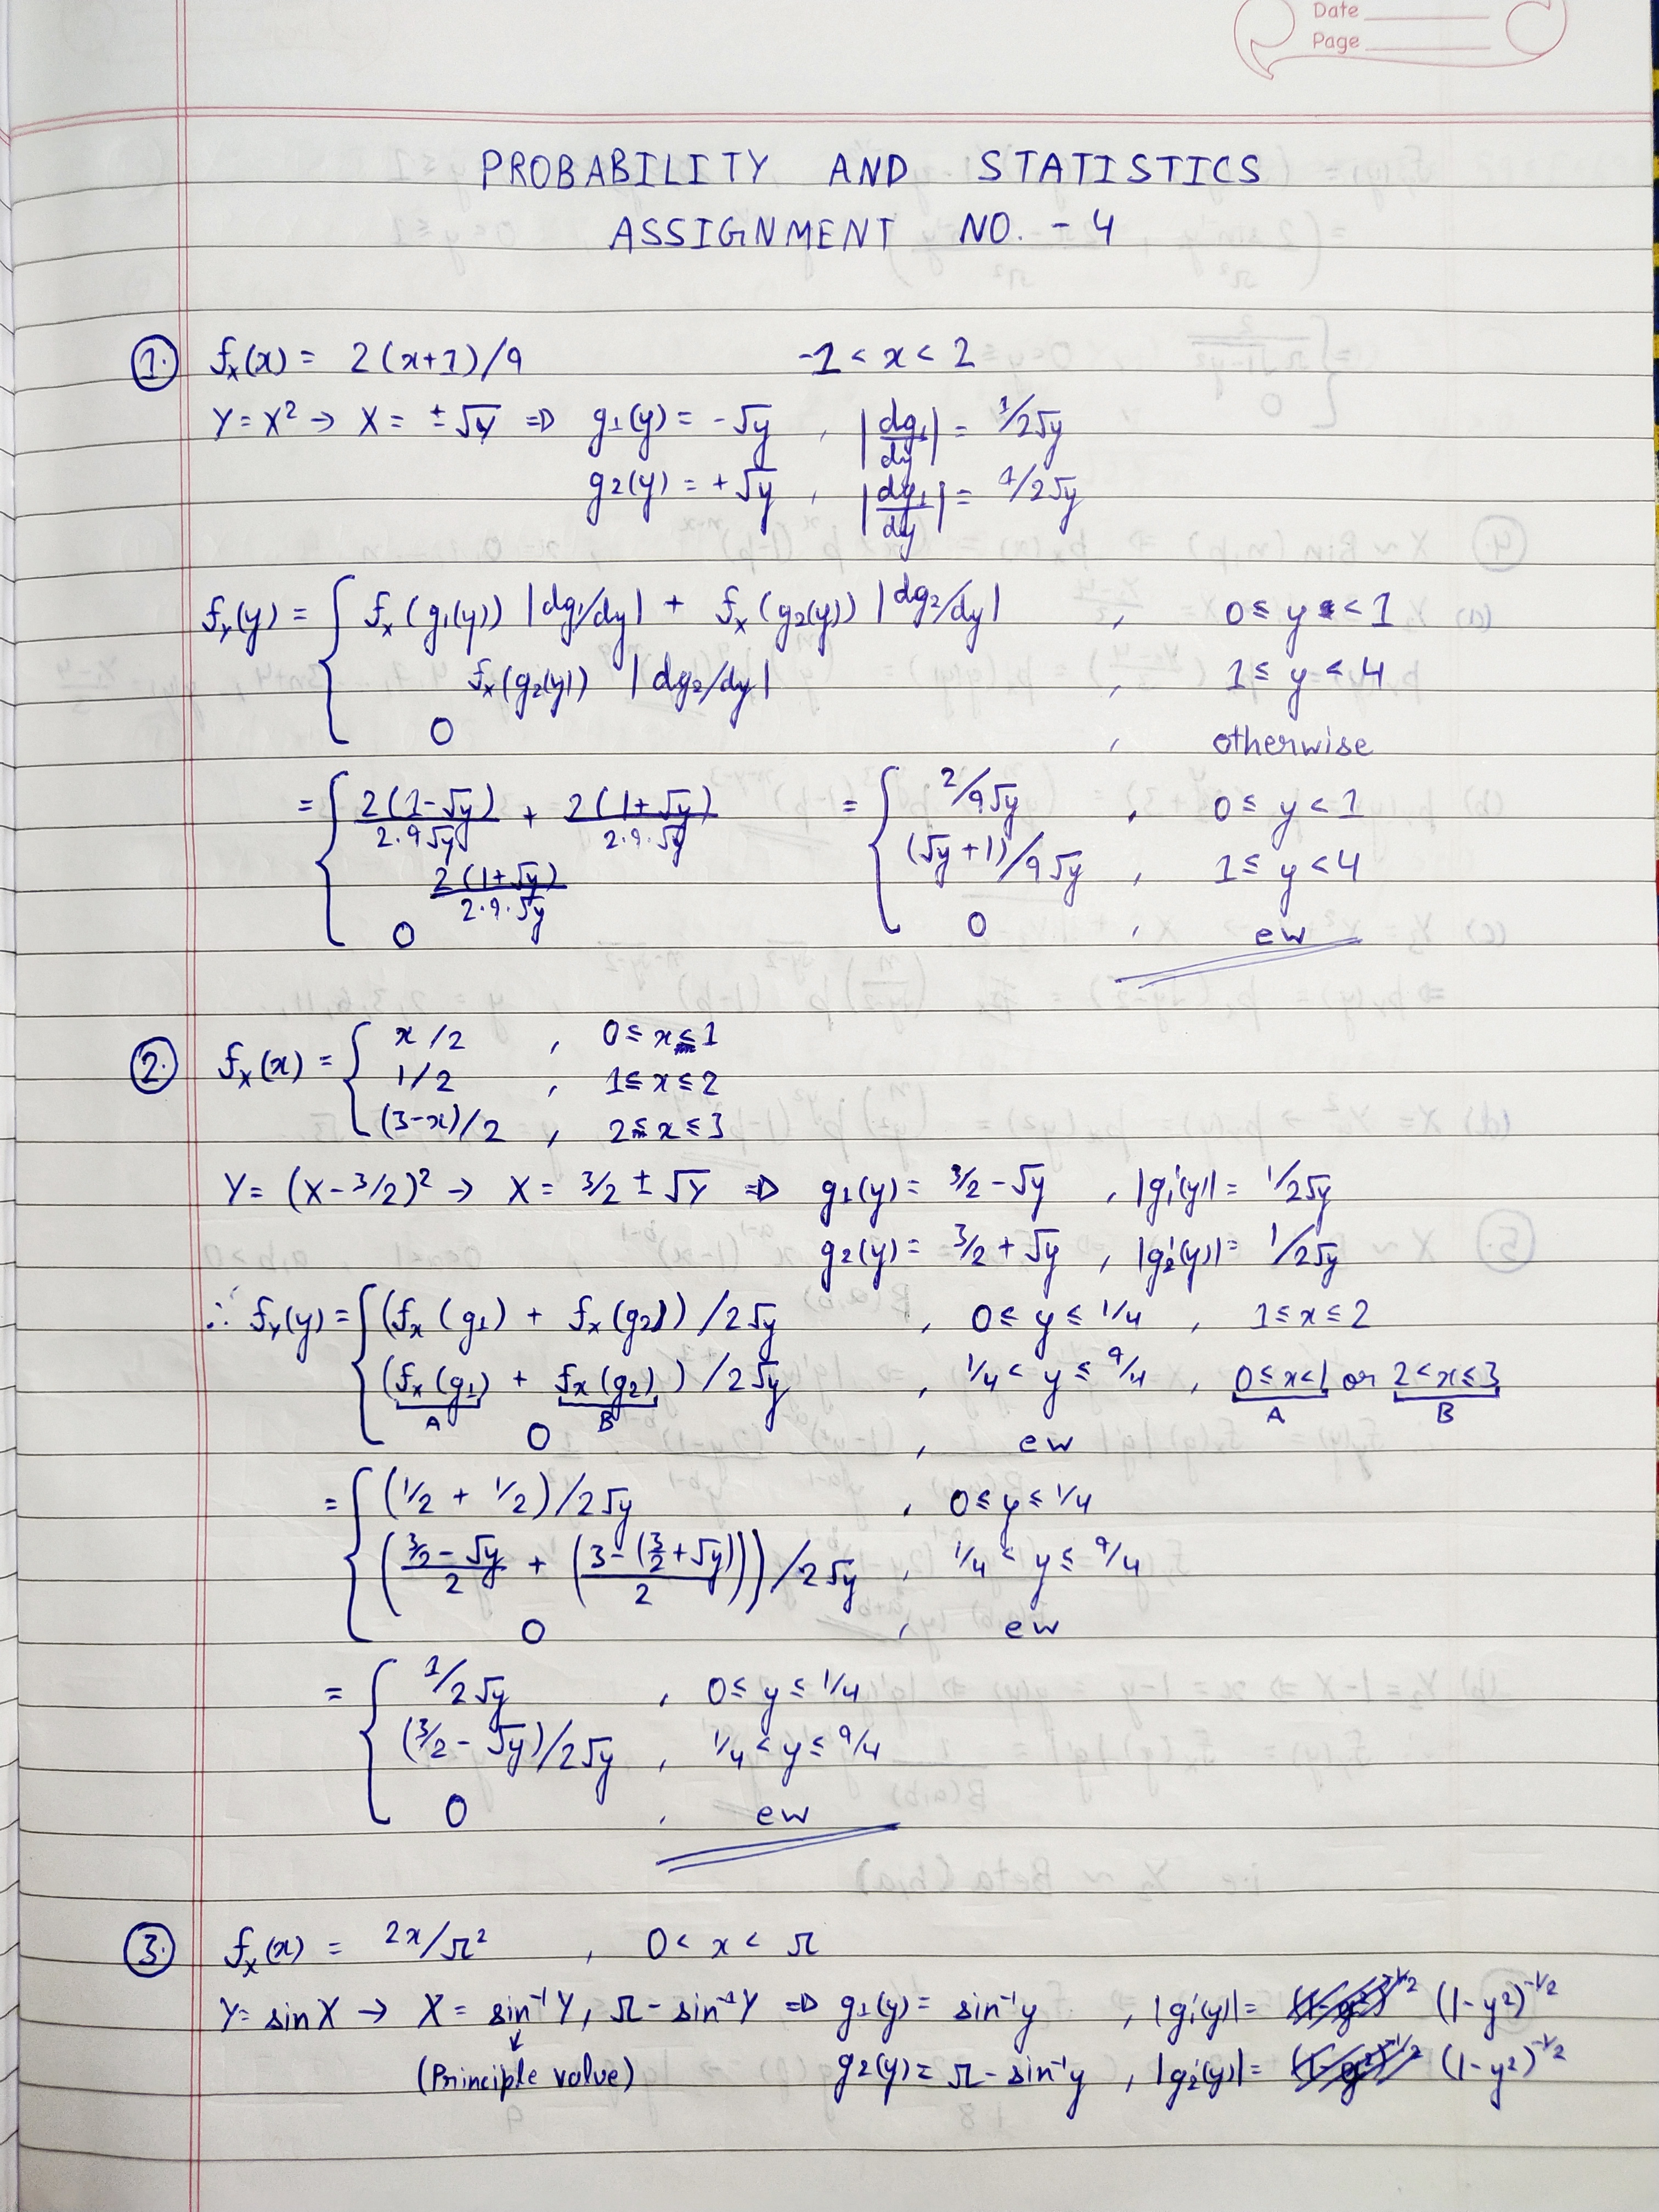 Date
Page
PROBABILITY AND STATISTICS
ASSIGNMENT NO. - 4
1. fx(x) = 2(x+1)/9 -1 < x < 2
Y = X² → X = ±√Y ⇒ g1(y) = -√y , |dg1/dy| = 1/2√y
g2(y) = +√y , |dg1/dy| = 1/2√y
fY(y) = { fx(g1(y)) |dg1/dy| + fx(g2(y)) |dg2/dy| , 0 ≤ y < 1
fx(g2(y)) |dg2/dy| , 1 ≤ y < 4
0 , otherwise
= { 2(1-√y)/2·9√y + 2(1+√y)/2·9·√y = { 2/9√y , 0 ≤ y < 1
2(1+√y)/2·9·√y (√y+1)/9√y , 1 ≤ y < 4
0 0 , ew
2. fx(x) = { x/2 , 0 ≤ x ≤ 1
1/2 , 1 ≤ x ≤ 2
(3-x)/2 , 2 ≤ x ≤ 3
Y = (X - 3/2)² → X = 3/2 ± √Y ⇒ g1(y) = 3/2 - √y , |g1'(y)| = 1/2√y
g2(y) = 3/2 + √y , |g2'(y)| = 1/2√y
∴ fY(y) = { (fx(g1) + fx(g2))/2√y , 0 ≤ y ≤ 1/4 , 1 ≤ x ≤ 2
(fx(g1) + fx(g2))/2√y , 1/4 < y ≤ 9/4 , 0 ≤ x < 1 or 2 < x ≤ 3
A B A B
0 , ew
= { (1/2 + 1/2)/2√y , 0 ≤ y ≤ 1/4
((3/2 - √y)/2 + ((3 - (3/2 + √y))/2))/2√y , 1/4 < y ≤ 9/4
0 , ew
= { 1/2√y , 0 ≤ y ≤ 1/4
(3/2 - √y)/2√y , 1/4 < y ≤ 9/4
0 , ew
3. fx(x) = 2x/π² , 0 < x < π
Y = sin X → X = sin⁻¹Y, π - sin⁻¹Y ⇒ g1(y) = sin⁻¹y , |g1'(y)| = (1-y²)^-1/2
(Principle value) g2(y) = π - sin⁻¹y , |g2'(y)| = (1-y²)^-1/2